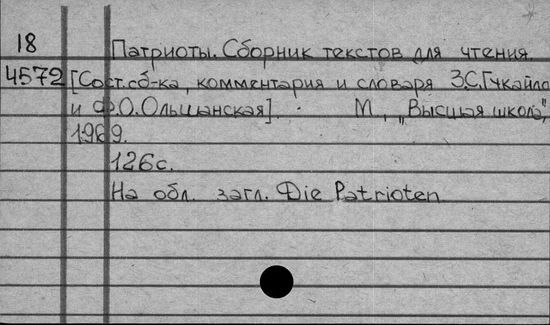 18 Патриоты. Сборник текстов для чтения.
4572 [Сост. сб-ка, комментария и словаря З.С.
и Ф.О. Ольшанская]. М., „Высшая школа",
1969.
126с.
На обл. загл. Die Patrioten